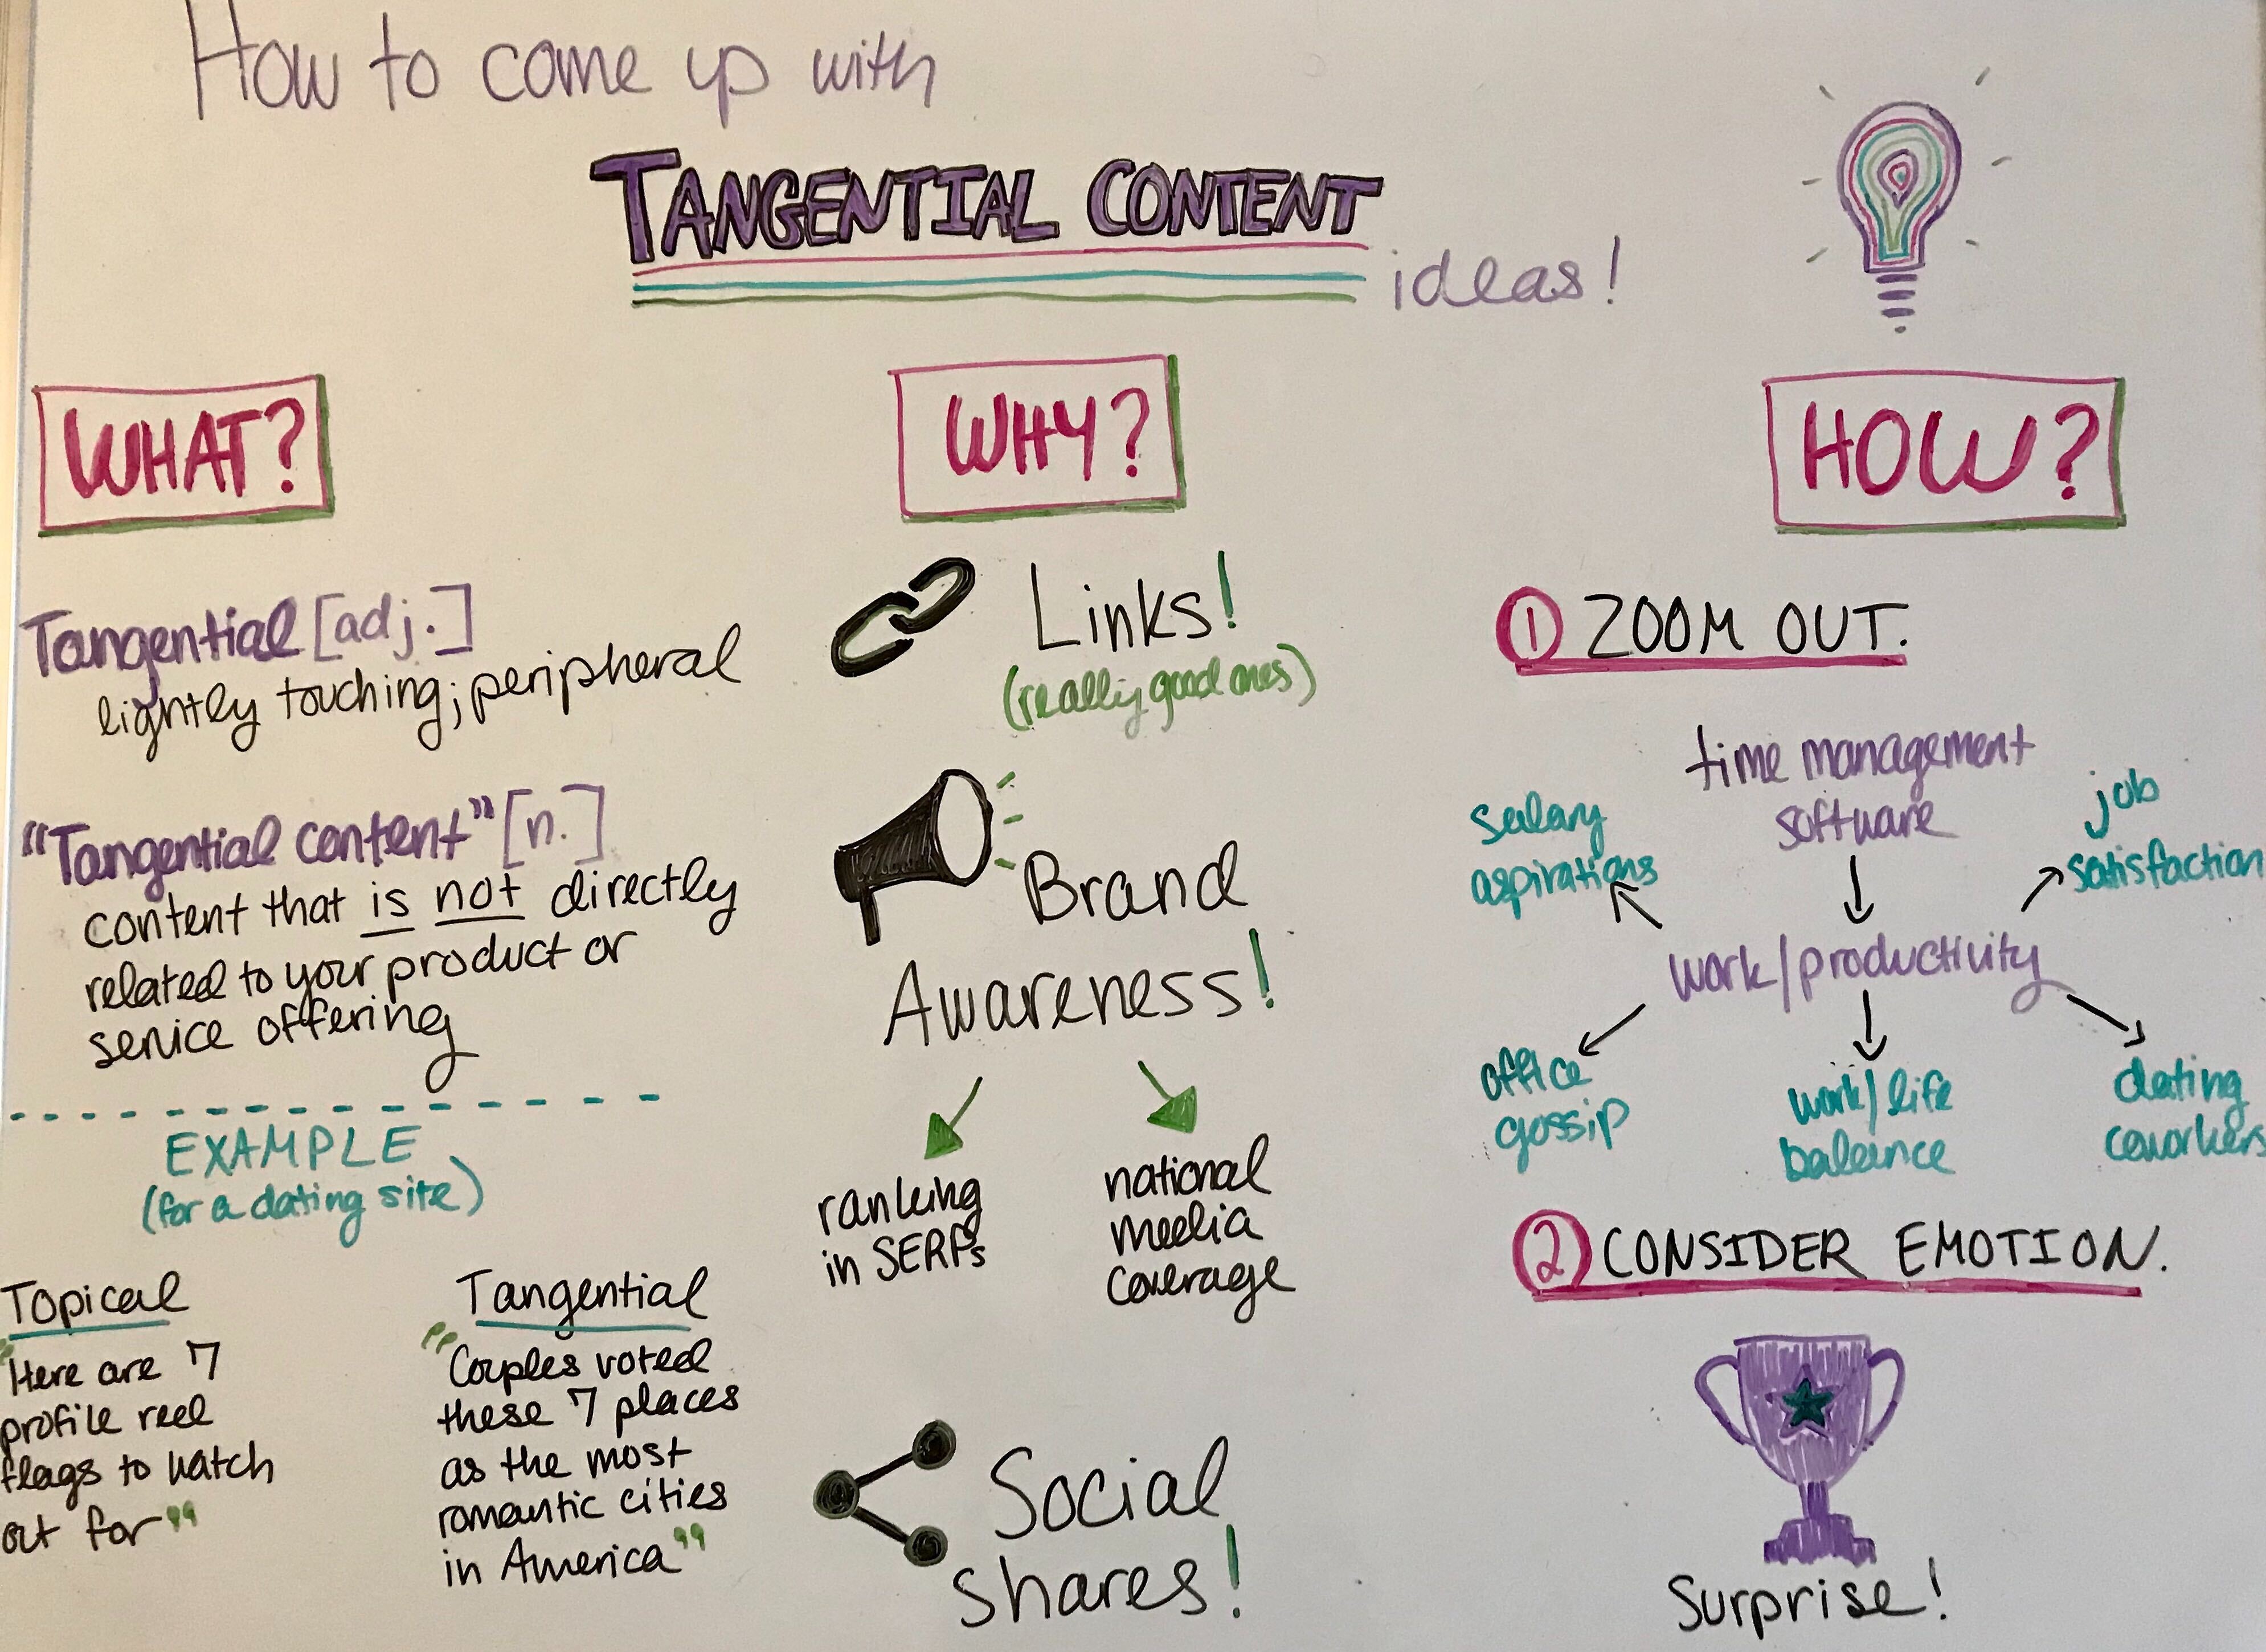 How to come up with
TANGENTIAL CONTENT
ideas!
WHAT?
Tangential [adj.]
lightly touching; peripheral
"Tangential content" [n.]
content that is not directly
related to your product or
service offering
EXAMPLE
(for a dating site)
Topical
"Here are 7
profile red
flags to watch
out for"
Tangential
"Couples voted
these 7 places
as the most
romantic cities
in America"
WHY?
Links!
(really good ones)
Brand
Awareness!
ranking
in SERPs
national
media
coverage
Social
shares!
HOW?
1 ZOOM OUT.
time management
software
salary
aspirations
job
satisfaction
work/productivity
office
gossip
work/life
balance
dating
coworkers
2 CONSIDER EMOTION.
Surprise!